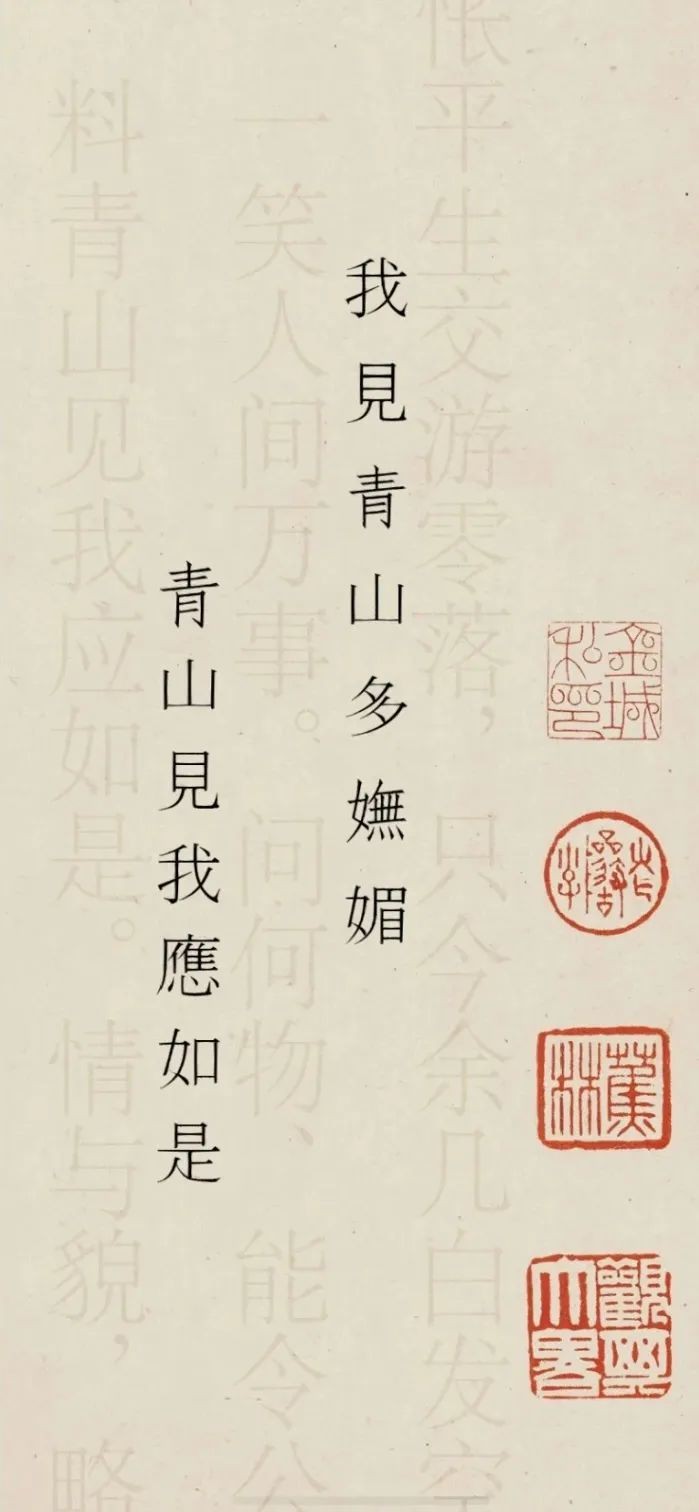 我見青山多嫵媚
青山見我應如是
怅平生交游零落，只今余几白发空
一笑人间万事。问何物、能令公
料青山见我应如是。情与貌，略
蕉林